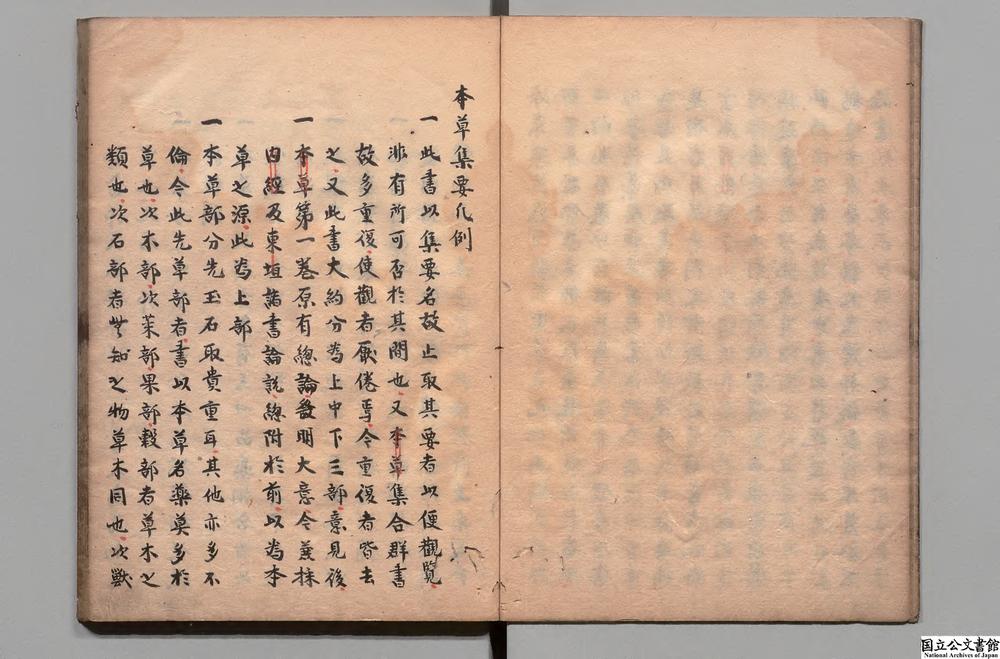 本草集要凡例
一此書以集要名故止取其要者以便觀覧
非有所可否於其間也又本草集合群書
故多重復使觀者厭倦焉今重復者皆去
之又此書大約分為上中下三部意見後
一本草第一巻原有總論發明大意今兼採
内經及東垣諸書論説總附於前以為本
草之源此為上部
一本草部分先玉石取貴重耳其他亦多不
倫今此先草部者書以本草名藥莫多於
草也次木部次菜部果部穀部者草木之
類也次石部者無知之物草木同也次獣
国立公文書館
National Archives of Japan